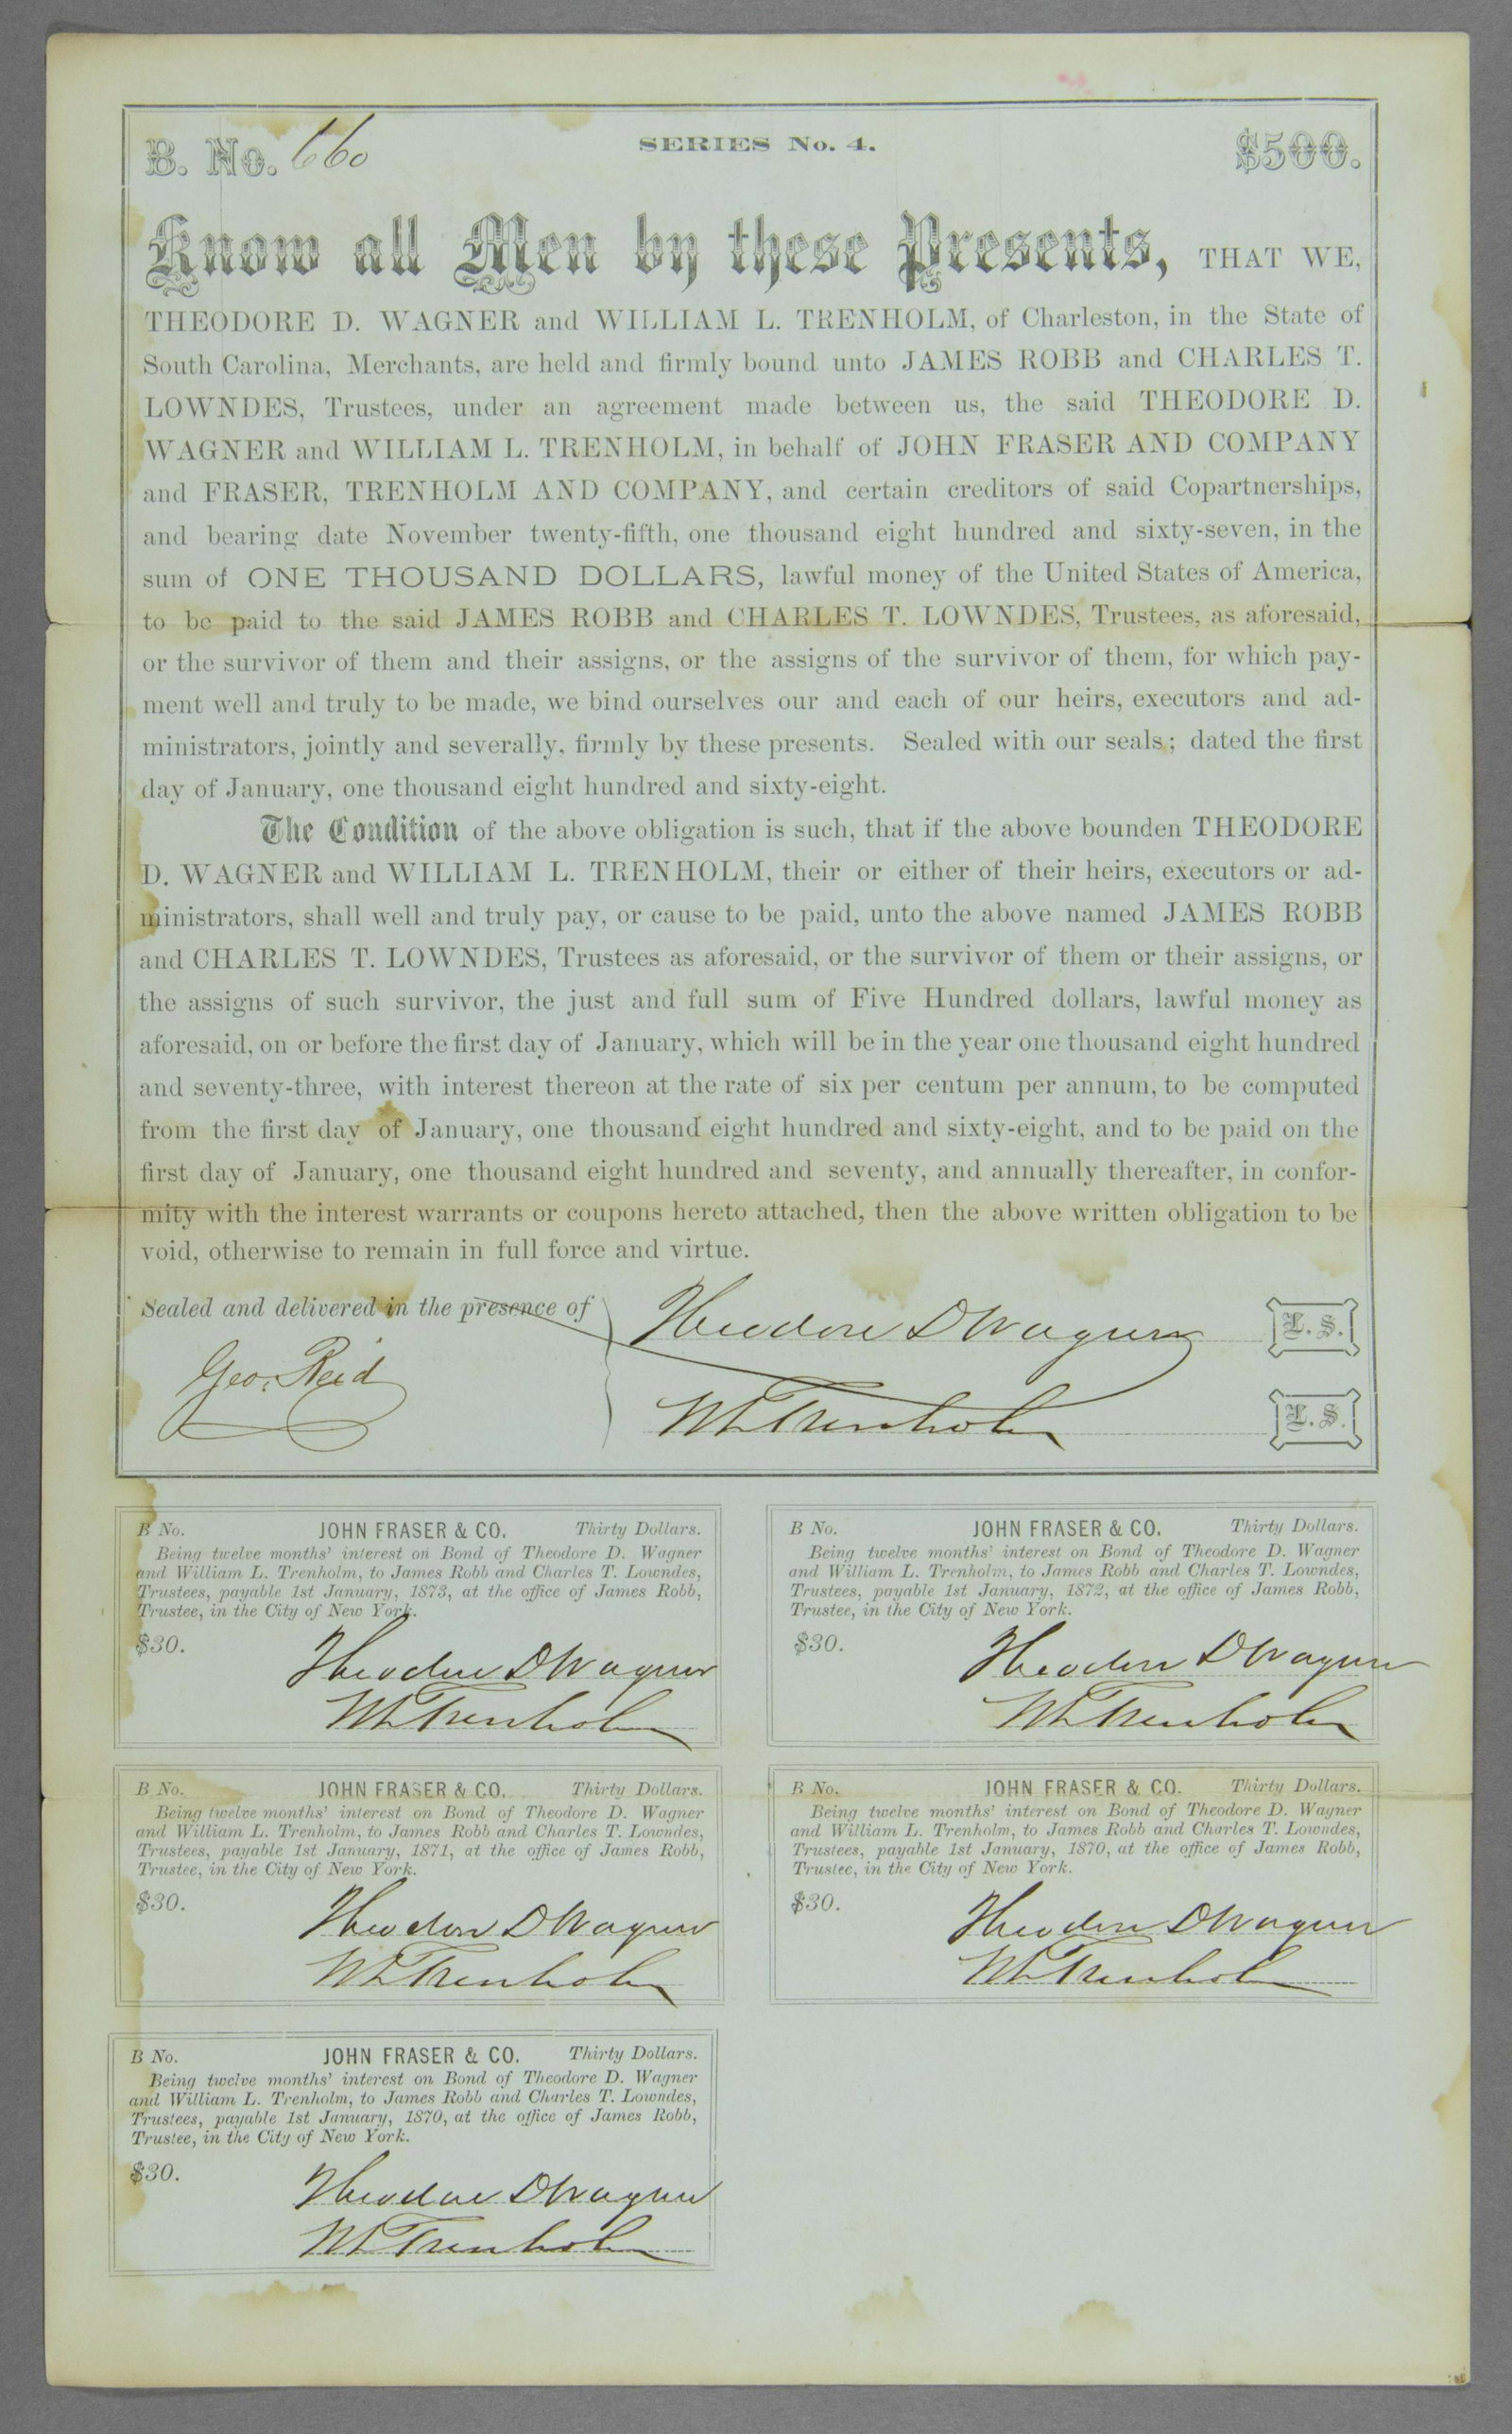 B. No. 660 SERIES No. 4. $500.
Know all Men by these Presents, THAT WE,
THEODORE D. WAGNER and WILLIAM L. TRENHOLM, of Charleston, in the State of
South Carolina, Merchants, are held and firmly bound unto JAMES ROBB and CHARLES T.
LOWNDES, Trustees, under an agreement made between us, the said THEODORE D.
WAGNER and WILLIAM L. TRENHOLM, in behalf of JOHN FRASER AND COMPANY
and FRASER, TRENHOLM AND COMPANY, and certain creditors of said Copartnerships,
and bearing date November twenty-fifth, one thousand eight hundred and sixty-seven, in the
sum of ONE THOUSAND DOLLARS, lawful money of the United States of America,
to be paid to the said JAMES ROBB and CHARLES T. LOWNDES, Trustees, as aforesaid,
or the survivor of them and their assigns, or the assigns of the survivor of them, for which pay-
ment well and truly to be made, we bind ourselves our and each of our heirs, executors and ad-
ministrators, jointly and severally, firmly by these presents. Sealed with our seals; dated the first
day of January, one thousand eight hundred and sixty-eight.
The Condition of the above obligation is such, that if the above bounden THEODORE
D. WAGNER and WILLIAM L. TRENHOLM, their or either of their heirs, executors or ad-
ministrators, shall well and truly pay, or cause to be paid, unto the above named JAMES ROBB
and CHARLES T. LOWNDES, Trustees as aforesaid, or the survivor of them or their assigns, or
the assigns of such survivor, the just and full sum of Five Hundred dollars, lawful money as
aforesaid, on or before the first day of January, which will be in the year one thousand eight hundred
and seventy-three, with interest thereon at the rate of six per centum per annum, to be computed
from the first day of January, one thousand eight hundred and sixty-eight, and to be paid on the
first day of January, one thousand eight hundred and seventy, and annually thereafter, in confor-
mity with the interest warrants or coupons hereto attached, then the above written obligation to be
void, otherwise to remain in full force and virtue.
Sealed and delivered in the presence of
Theodore D Wagner L. S.
Geo. Reid
WL Trenholm L. S.
B No. JOHN FRASER & CO. Thirty Dollars.
Being twelve months' interest on Bond of Theodore D. Wagner
and William L. Trenholm, to James Robb and Charles T. Lowndes,
Trustees, payable 1st January, 1873, at the office of James Robb,
Trustee, in the City of New York.
$30.
Theodore D Wagner
WL Trenholm
B No. JOHN FRASER & CO. Thirty Dollars.
Being twelve months' interest on Bond of Theodore D. Wagner
and William L. Trenholm, to James Robb and Charles T. Lowndes,
Trustees, payable 1st January, 1872, at the office of James Robb,
Trustee, in the City of New York.
$30.
Theodore D Wagner
WL Trenholm
B No. JOHN FRASER & CO. Thirty Dollars.
Being twelve months' interest on Bond of Theodore D. Wagner
and William L. Trenholm, to James Robb and Charles T. Lowndes,
Trustees, payable 1st January, 1871, at the office of James Robb,
Trustee, in the City of New York.
$30.
Theodore D Wagner
WL Trenholm
B No. JOHN FRASER & CO. Thirty Dollars.
Being twelve months' interest on Bond of Theodore D. Wagner
and William L. Trenholm, to James Robb and Charles T. Lowndes,
Trustees, payable 1st January, 1870, at the office of James Robb,
Trustee, in the City of New York.
$30.
Theodore D Wagner
WL Trenholm
B No. JOHN FRASER & CO. Thirty Dollars.
Being twelve months' interest on Bond of Theodore D. Wagner
and William L. Trenholm, to James Robb and Charles T. Lowndes,
Trustees, payable 1st January, 1870, at the office of James Robb,
Trustee, in the City of New York.
$30.
Theodore D Wagner
WL Trenholm